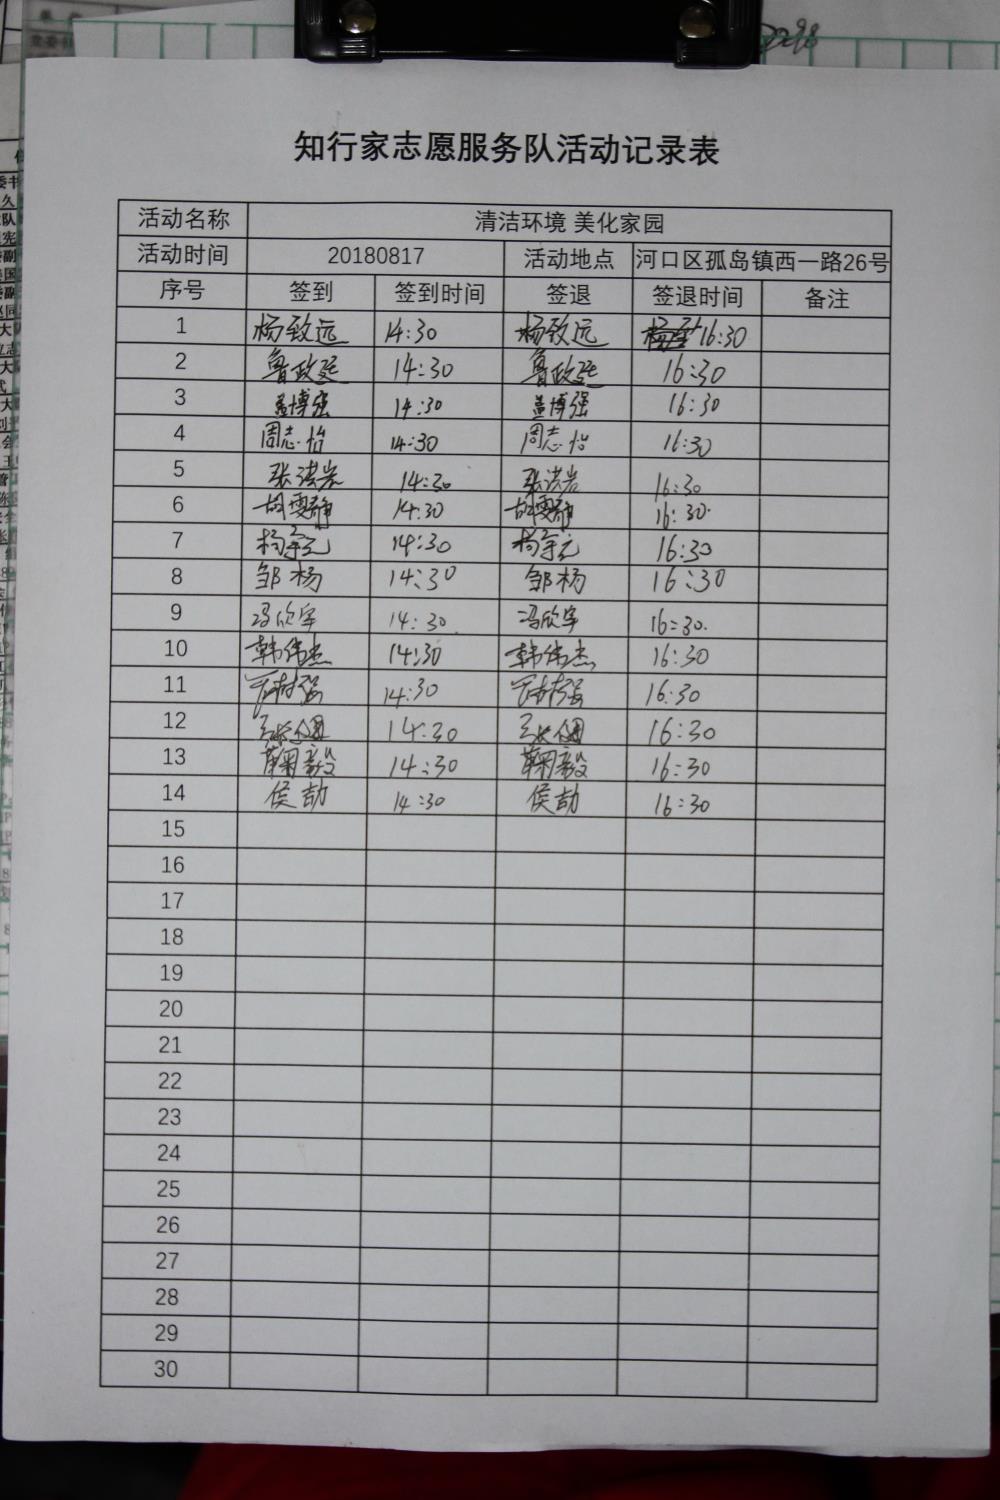 知行家志愿服务队活动记录表
活动名称 清洁环境 美化家园
活动时间 20180817 活动地点 河口区孤岛镇西一路26号
序号 签到 签到时间 签退 签退时间 备注
1 杨致远 14:30 杨致远 16:30
2 鲁政廷 14:30 鲁政廷 16:30
3 盖博强 14:30 盖博强 16:30
4 周志怡 14:30 周志怡 16:30
5 张洪岩 14:30 张洪岩 16:30
6 胡雯静 14:30 胡雯静 16:30
7 杨 14:30 杨 16:30
8 邹杨 14:30 邹杨 16:30
9 冯欣宇 14:30 冯欣宇 16:30
10 韩伟杰 14:30 韩伟杰 16:30
11 14:30 16:30
12 14:30 16:30
13 鞠毅 14:30 鞠毅 16:30
14 侯劼 14:30 侯劼 16:30
15
16
17
18
19
20
21
22
23
24
25
26
27
28
29
30